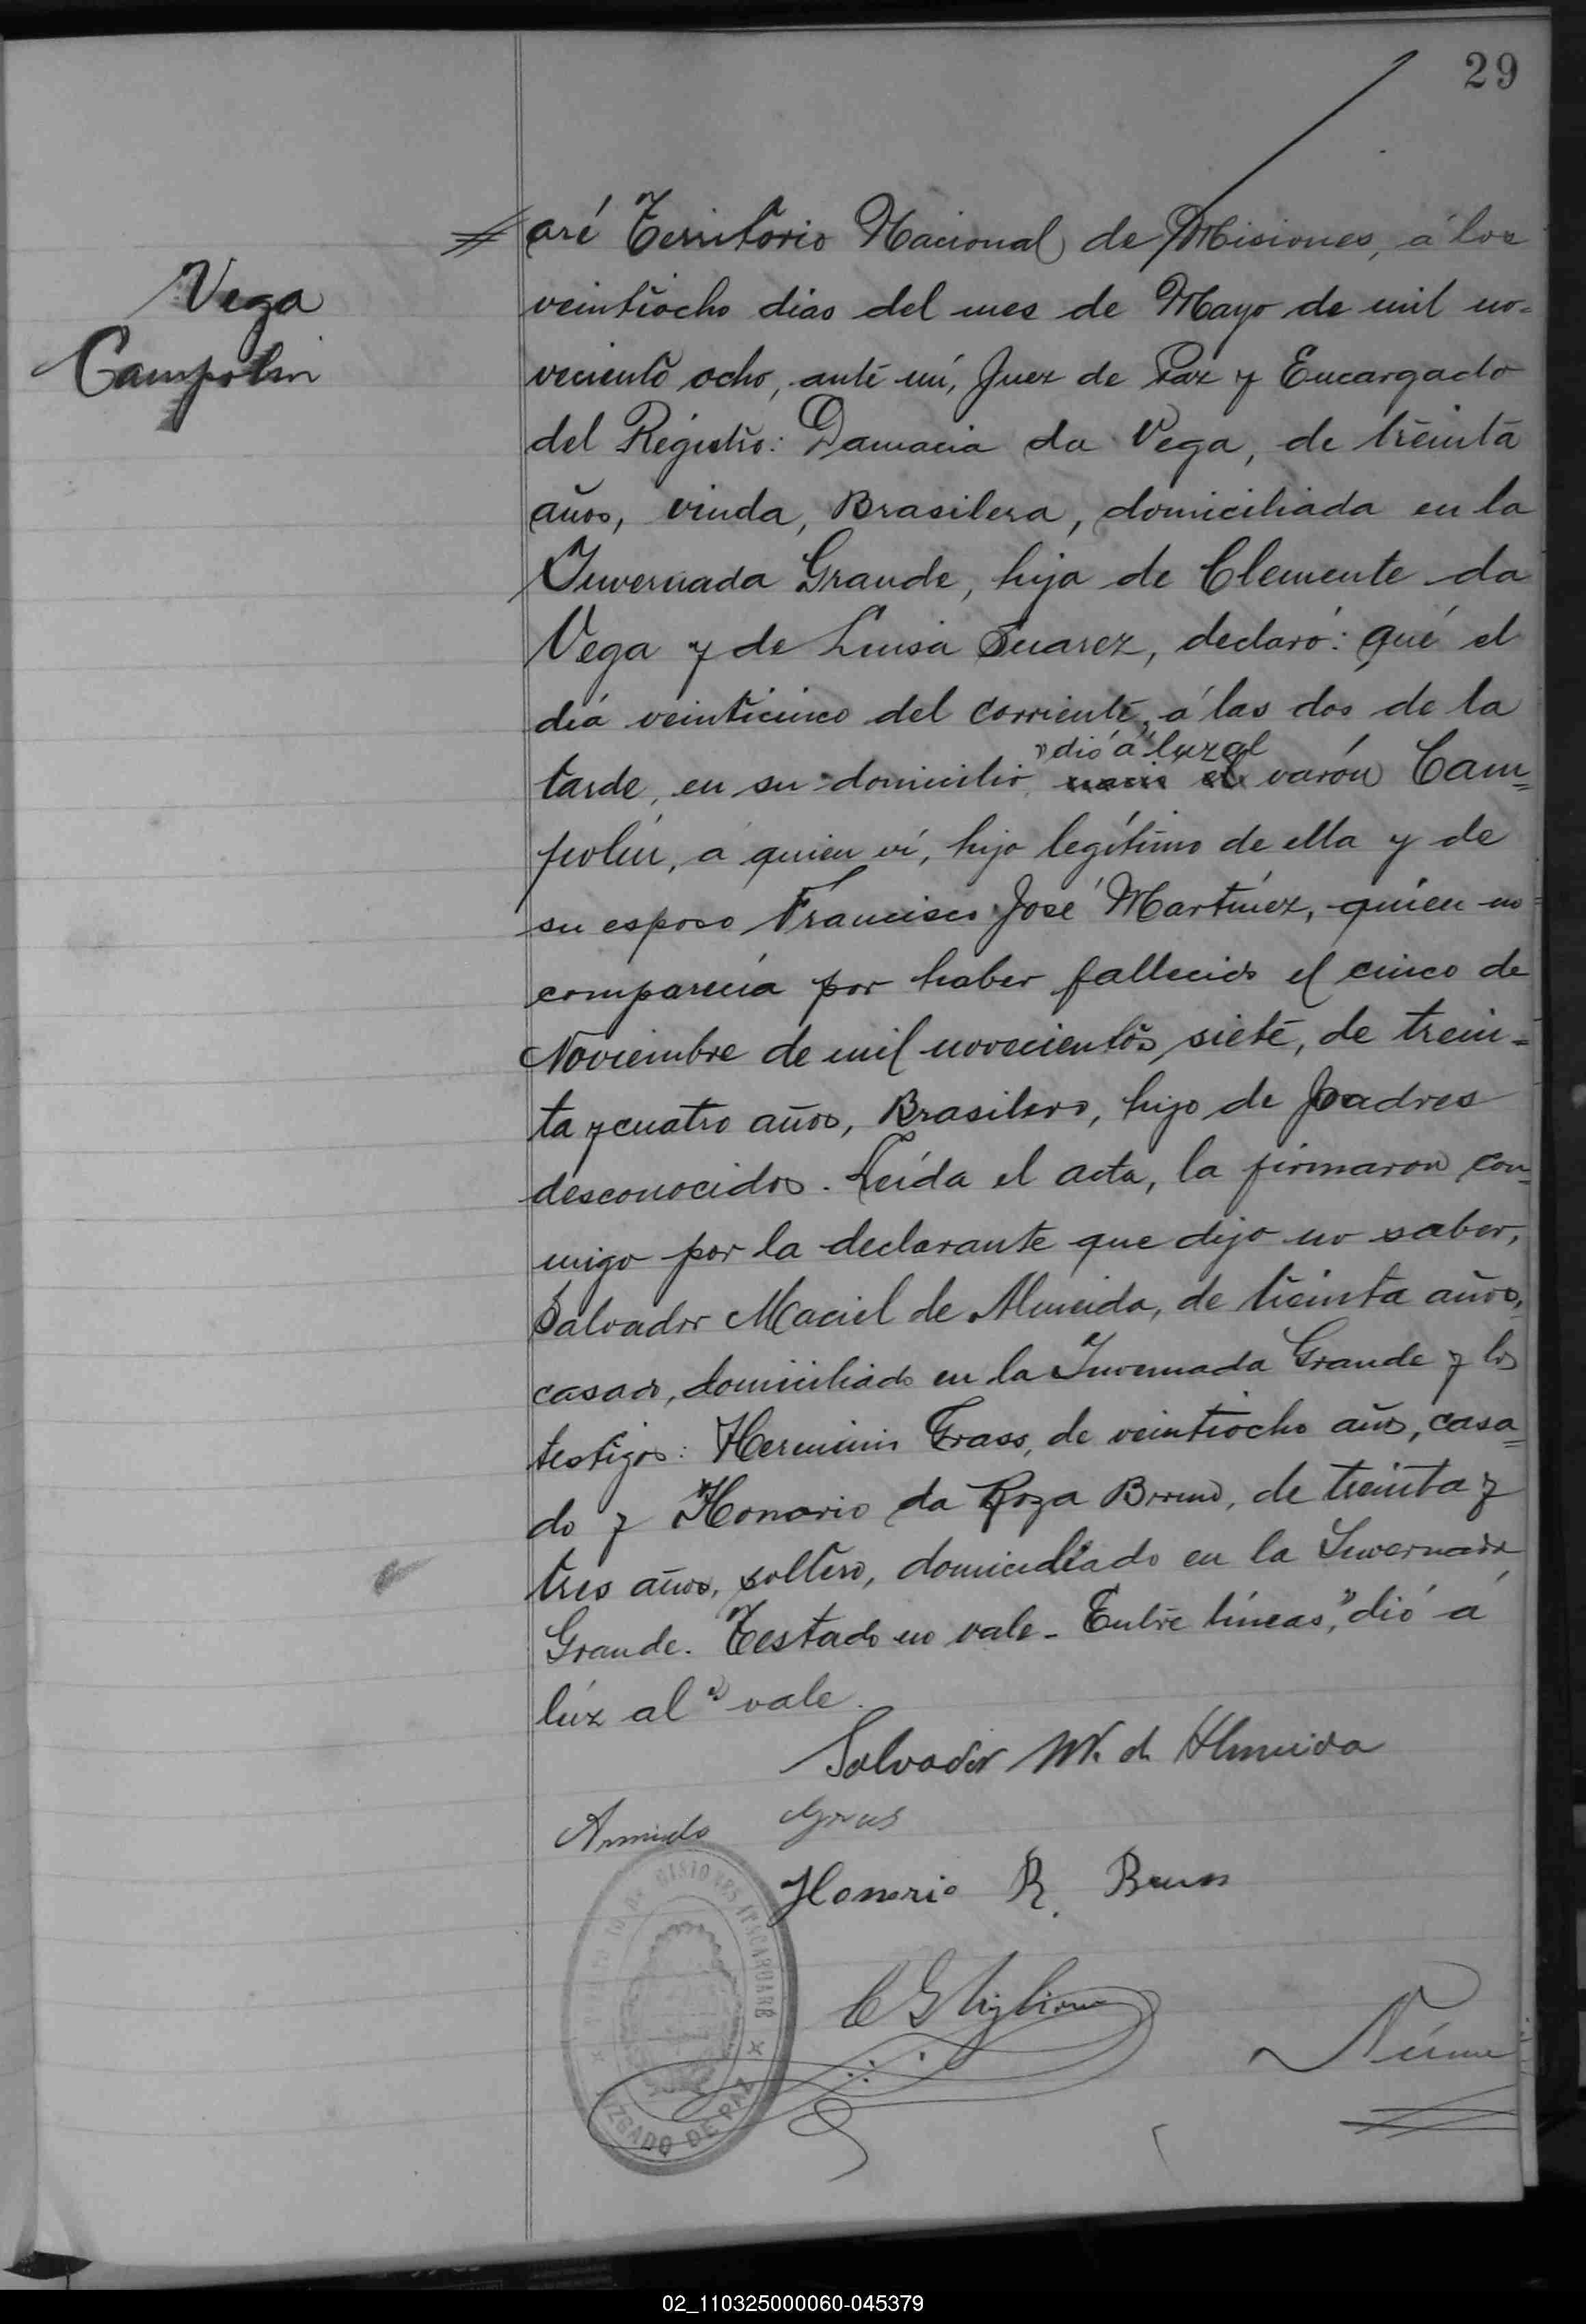 29
Vega
Campolin
aré Territorio Nacional de Misiones, á los
veintiocho dias del mes de Mayo de mil no=
veciento ocho, ante mí, Juez de Paz y Encargado
del Registro: Damacia da Vega, de treinta
años, viuda, Brasilera, domiciliada en la
Invernada Grande, hija de Clemente da
Vega y de Luisa Suarez, declaró: qué el
diá veinticinco del corriente, á las dos de la
"dió á luz al
tarde, en su domicilio nacio el varón Cam=
polín, a quien ví, hijo legítimo de ella y de
su esposo Francisco José Martínez, quien no
comparecía por haber fallecido el cinco de
Noviembre de mil novecientos siete, de trein=
ta y cuatro años, Brasilero, hijo de padres
desconocidos. Leída el acta, la firmaron con=
migo por la declarante que dijo no saber,
Salvador Maciel de Almeida, de treinta años,
casado, domiciliado en la Invernada Grande y los
testigos: Herminio Grass, de veintiocho años, casa=
do y Honorio da Roza Bueno, de treinta y
tres años, soltero, domiciliado en la Invernada
Grande. Testado no vale - Entre líneas, "dió á
lúz al" vale.
Salvador M. de Almeida
Armido Gras
Honorio R.
JUZGADO DE PAZ